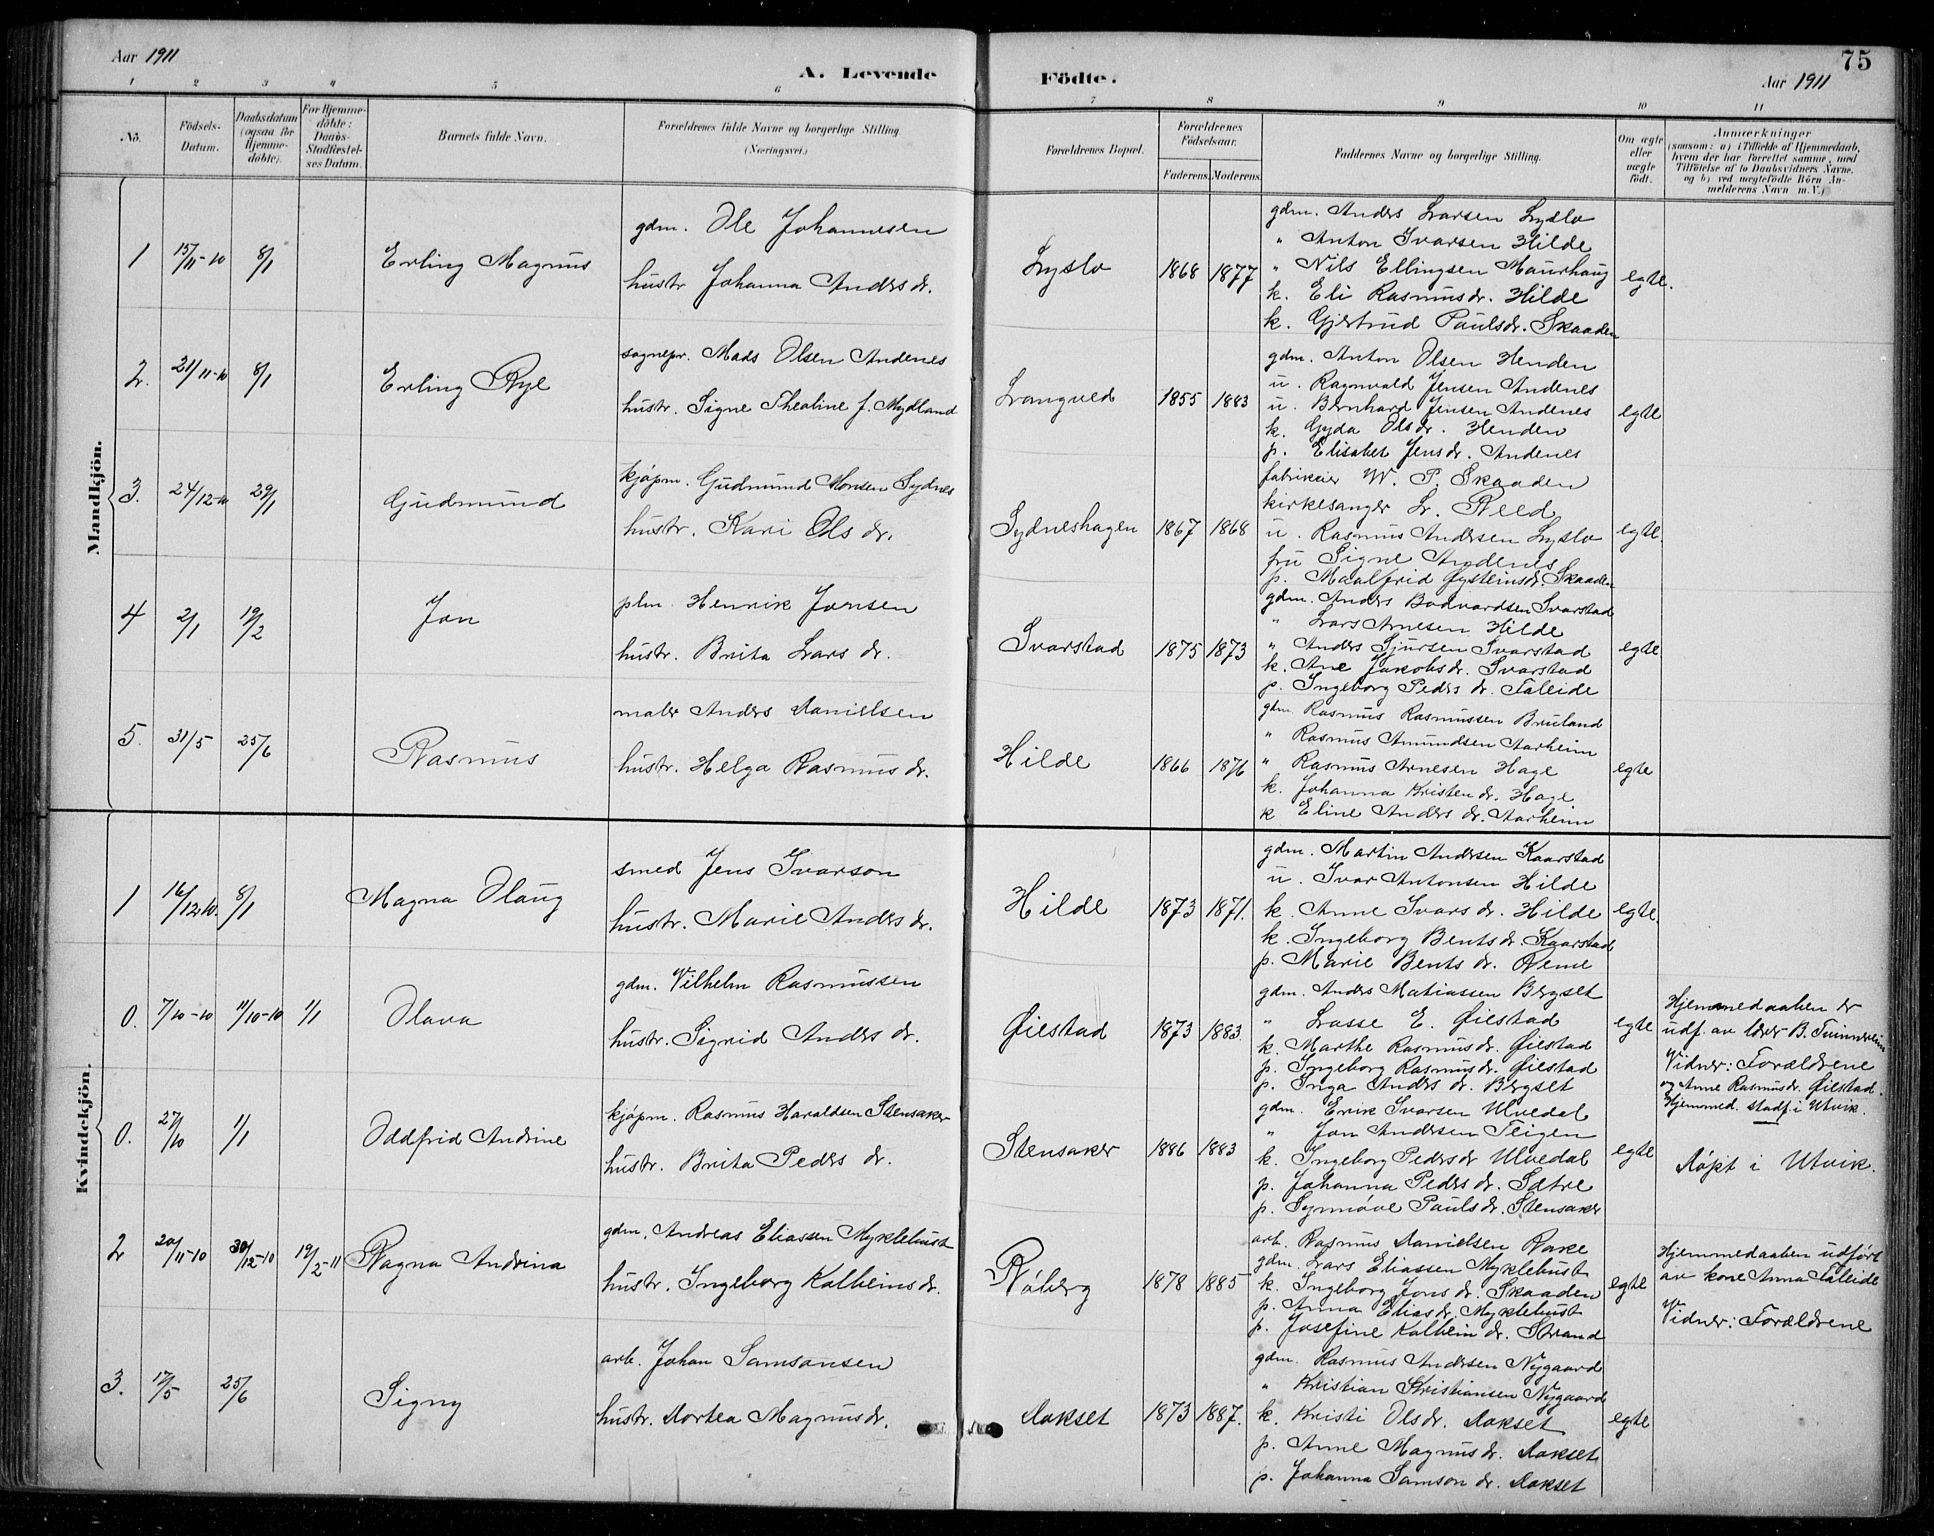 Aar 1911
A. Levende Födte.
Aar 1911
75
1 2 3 4 5 6 7 8 9 10 11
No.
Födsels-Datum.
Daabsdatum (ogsaa for Hjemmedöbte).
For Hjemmedöbte: Daabs-Stadfæstelses Datum.
Barnets fulde Navn.
Forældrenes fulde Navne og borgerlige Stilling. (Næringsvei.)
Forældrenes Bopæl.
Forældrenes Födselsaar.
Faderens. Moderens.
Faddernes Navne og borgerlige Stilling.
Om ægte eller uægte födt.
Anmærkninger
(saasom: a) i Tilfælde af Hjemmedaab,
hvem der har forrettet samme, med
Tilföielse af to Daabsvidners Navne,
og b) ved uægtefödte Börn An-
melderens Navn m. V.)
Mandkjön.
1 15/11-10 8/1 Erling Magnus
gdm. Ole Johannesen
hustr Johanna Anders dr.
Lyslo 1868 1877
gdm. Anders Larsen Lyslo
" Anton Ivarsen Hilde
" Nils Ellingsen Maurhaug
k. Eli Rasmusdr. Hilde
k. Gjertrud Paulsdr. Skaaden
egte.
2. 21/11-10 8/1 Erling Rye
sognepr. Mads Olsen Andenes
hustr. Signe Theoline f. Mydland
Langved 1855 1883
gdm. Anton Olsen Henden
u. Ragnvald Jensen Andenes
u. Bernhard Jensen Andenes
k. Gyda Olsdr. Henden
p. Elisabet Jensdr. Andenes
egte
3. 24/12-10 29/1 Gudmund
kjøpm. Gudmund Monsen Sydnes
hustr. Kari Ols dr.
Sydneshagen 1867 1868
fabrikeier W. P. Skaaden
kirkesanger L. Reed
u. Rasmus Andersen Lyslo
fru Signe Andenes
p. Maalfrid Øysteinsdr. Skaaden
egte.
4 2/1 19/2 Jon
plm. Henrik Jonsen
hustr. Brita Lars dr.
Svarstad 1875 1873
gdm. Anders Bodvardsen Svarstad
" Lars Arnesen Hilde
" Anders Sjursen Svarstad
k. Ane Jakobsdr. Svarstad
p. Ingeborg Peders dr. Faleide
egte
5. 31/5 25/6 Rasmus
maler Anders Danielsen
hustr. Helga Rasmus dr.
Hilde 1866 1876
gdm. Rasmus Rasmussen Bruland
" Rasmus Amundsen Aarheim
" Rasmus Arnesen Hage
k. Johanna Kristen dr. Hage
k Eline Anders dr. Aarheim
egte
Kvindekjön.
1 16/12-10. 8/1 Magna Olaug
smed Jens Ivarson
hustr. Marie Anders dr.
Hilde 1873 1871.
gdm. Martin Andersen Kaarstad
u. Ivar Antonsen Hilde
k. Anne Ivars dr. Hilde
k. Ingeborg Bentsdr. Kaarstad
p. Marie Bents dr.
egte.
0. 7/10-10 11/10-10 1/1 Olava
gdm. Vilhelm Rasmussen
hustr. Sigrid Anders dr.
Øiestad 1873 1883.
gdm. Anders Matiassen Bergset
" Lasse E. Øiestad
k. Marthe Rasmusdr. Øiestad
p. Ingeborg Rasmusdr. Øiestad
p. Inga Anders dr. Bergset
egte
Hjemmedaaben er
udf. av lærer B. Tvinnereim
Vidner: Forældrene
og Anne Rasmusdr. Øiestad.
Hjemmed. stadf. i Utvik.
0. 27/10 1/1 Oddfrid Andrine
kjøpm. Rasmus Haraldsen Stensaker
hustr. Brita Peders dr.
Stensaker 1886 1883
gdm. Erik Ivarsen Ulvedal
" Jon Andersen Teigen
k. Ingeborg Pedersdr Ulvedal
p. Johanna Peders dr. Sætre
p. Synnøve Pauls dr. Stensaker
egte
Døpt i Utvik.
2 20/11-10 30/12-10 19/2-11 Ragna Andrina
gdm. Andreas Eliassen Myklebust
hustr. Ingeborg Kolbeinsdr.
Røberg 1878 1885
arb. Rasmus Danielsen Rake
gdm. Lars Eliassen Myklebust
k. Ingeborg Jons dr. Skaaden
p. Anna Elias dr. Myklebust
p. Josefine Kolbein dr. Strand
egte
Hjemmedaaben udført
av kone Anna Faleide
Vidner: Forældrene
3. 17/5 25/6 Signy
arb. Johan Samsonsen
hustr. Dortea Magnusdr.
Dokset 1873 1887.
gdm. Rasmus Andersen Nygaard
" Kristian Kristiansen Nygaard
k. Kristi Olsdr. Dokset
p. Anne Magnusdr. Dokset
p. Johanna Samson dr. Dokset
egte